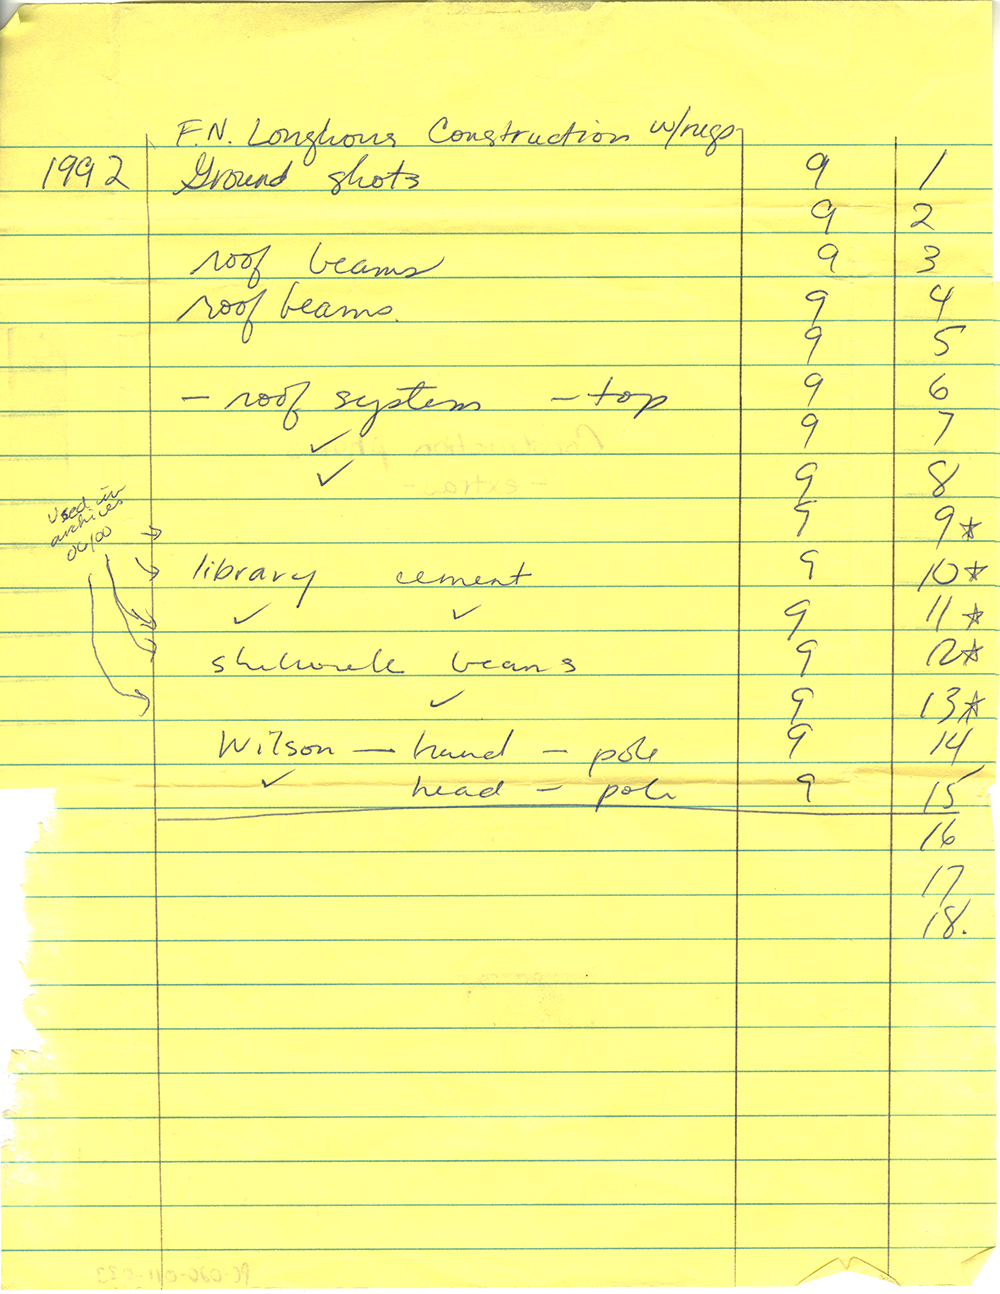 F.N. Longhous Construction w/negs
1992 Ground shots 9 1
9 2
roof beams 9 3
roof beams. 9 4
9 5
- roof system - top 9 6
✓ 9 7
✓ 9 8
Used in
archives
06/00
9 9☆
library cement 9 10☆
✓ ✓ 9 11☆
beams 9 12☆
✓ 9 13☆
Wilson - hand - pole 9 14
✓ head - pole 9 15
16
17
18.
Construction
- extras -
PC-020-011-033